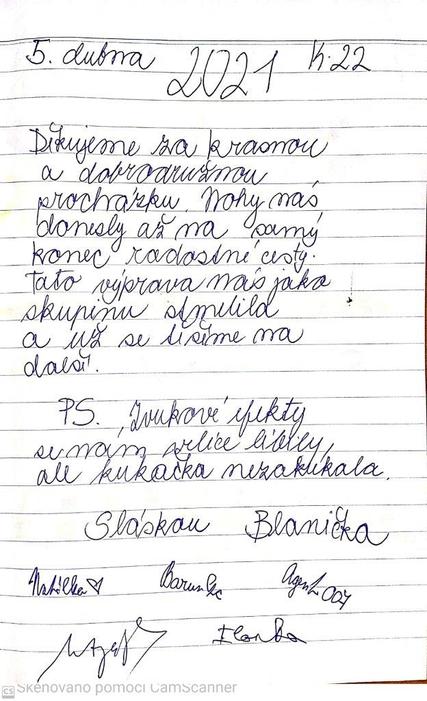 5. dubna 2021 K:22
Děkujeme za krasnou
a dobrodružnou
procházku. Nohy nás
donesly až na samý
konec radostné cesty.
Tato výprava nás jako
skupinu stmelila
a už se těšíme na
další.
PS. Zvukové efekty
se nám velice líbily,
ale kukačka nezakukala.
S láskou Blanička
Barunka Agent 007
Skenováno pomocí CamScanner